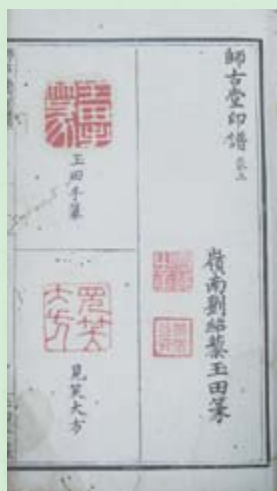 師古堂印譜 卷上
嶺南劉紹藜玉田篆
玉田手篆
見笑大方
見笑大方